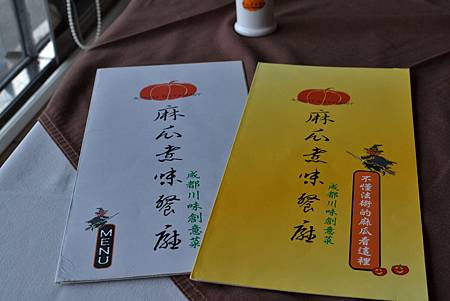 麻瓜煮味餐廳
成都川味創意菜
MENU
麻瓜煮味餐廳
成都川味創意菜
不懂法術的麻瓜看這裡